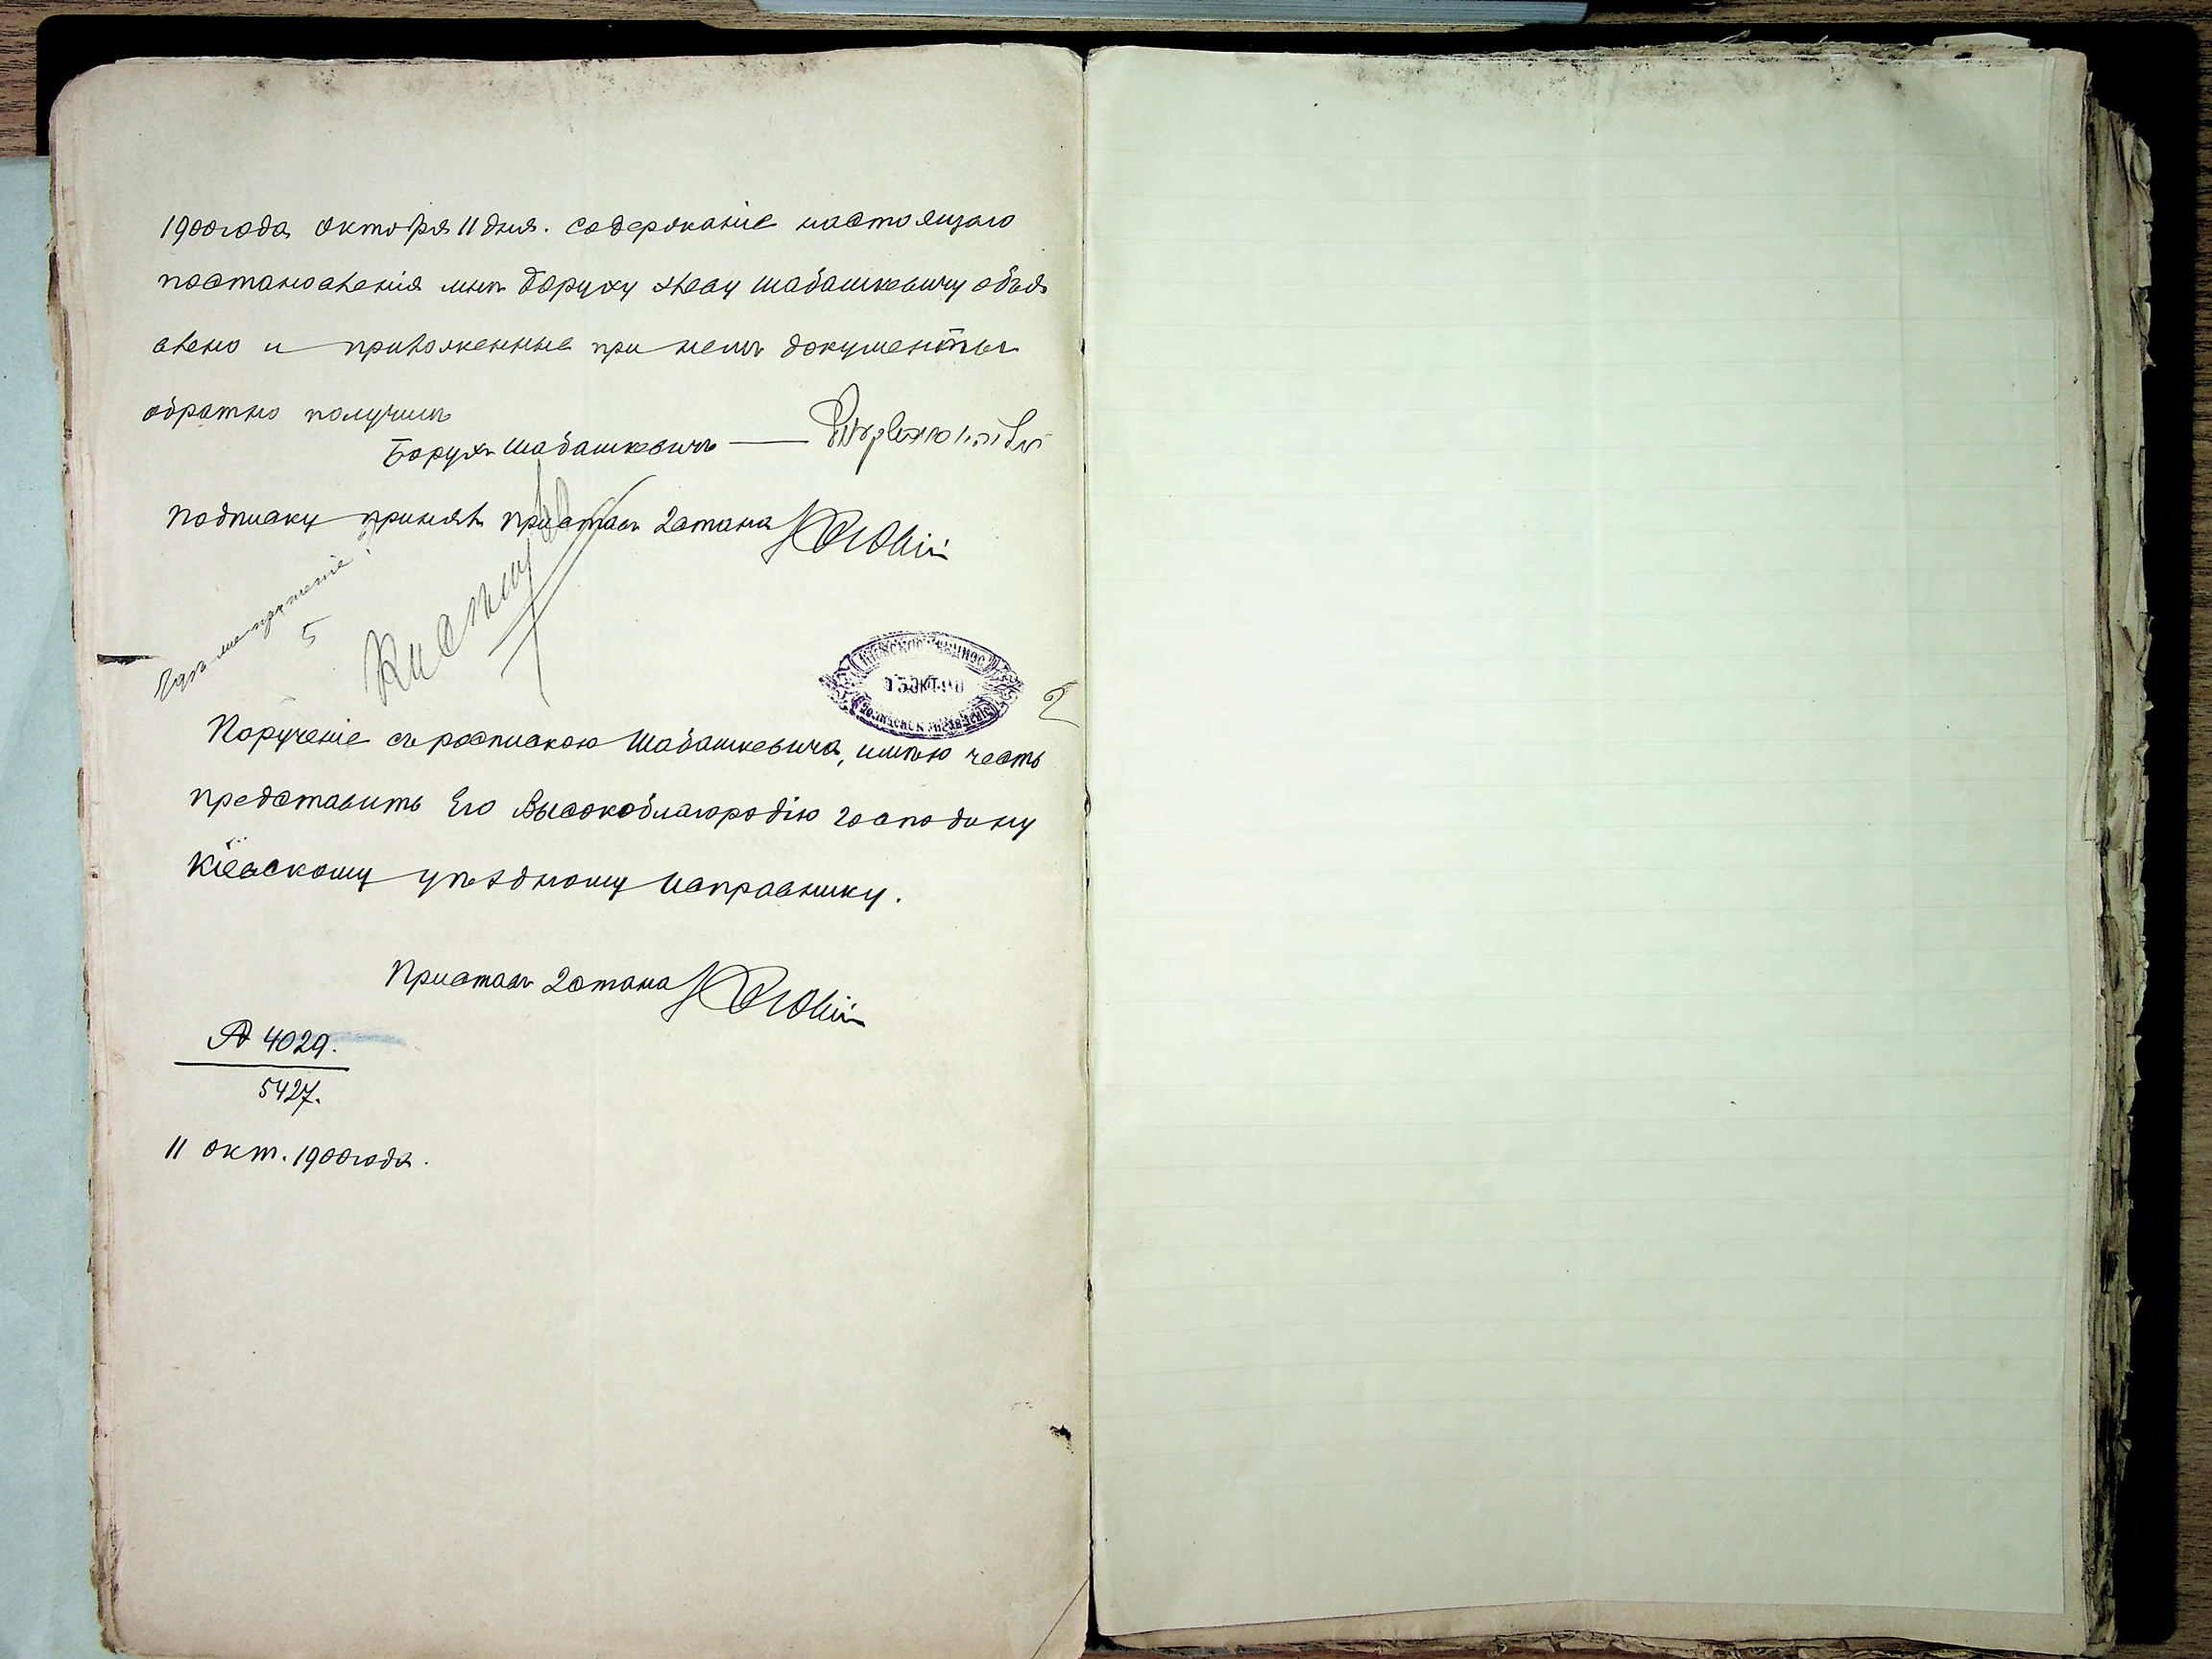 1900 года октября 11 дня. Содержаніе настоящаго
постановленія мнѣ Боруху Лѣву Шабашкевичу объя
влено и приложенные при немъ документы
обратно получилъ
Борухъ Шабашкевичъ —
Подписку принялъ приставъ 2 стана
5
13 ОКТ. 90
2
Порученіе съ роспискою Шабашкевича, имѣю честь
представить Его Высокоблагородію господину
Кіевскому уѣздному Исправнику.
Приставъ 2 стана
№ 4029.
5427.
11 окт. 1900 года.